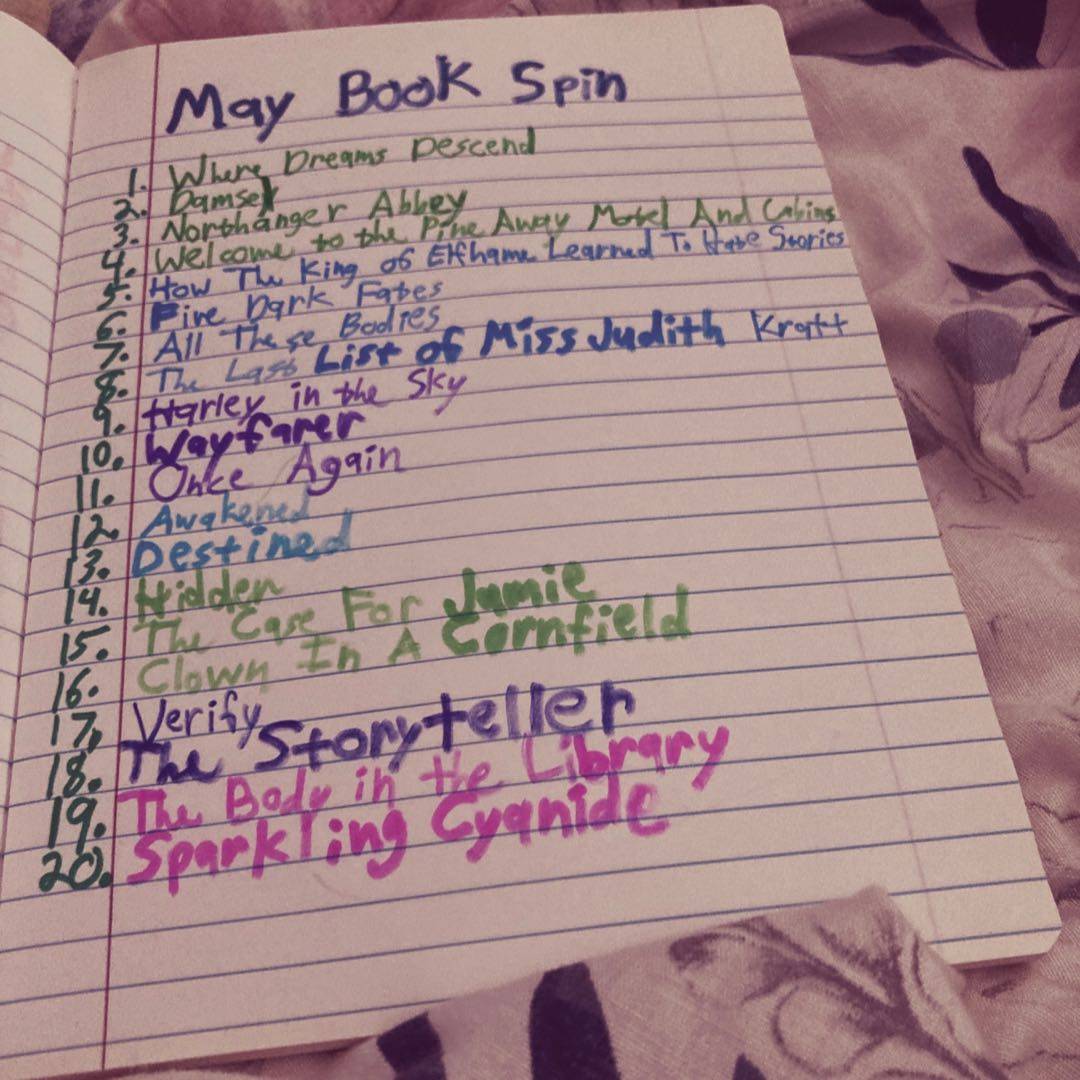 May Book Spin
1. Where Dreams Descend
2. Damsel
3. Northanger Abbey
4. Welcome to the Pine Away Motel And Cabins
5. How The King of Elfhame Learned To Hate Stories
6. Five Dark Fates
7. All These Bodies
8. The Last List of Miss Judith Kratt
9. Harley in the Sky
10. Wayfarer
11. Once Again
12. Awakened
13. Destined
14. Hidden
15. The Case For Jamie
16. Clown In A Cornfield
17. Verify
18. The Storyteller
19. The Body in the Library
20. Sparkling Cyanide